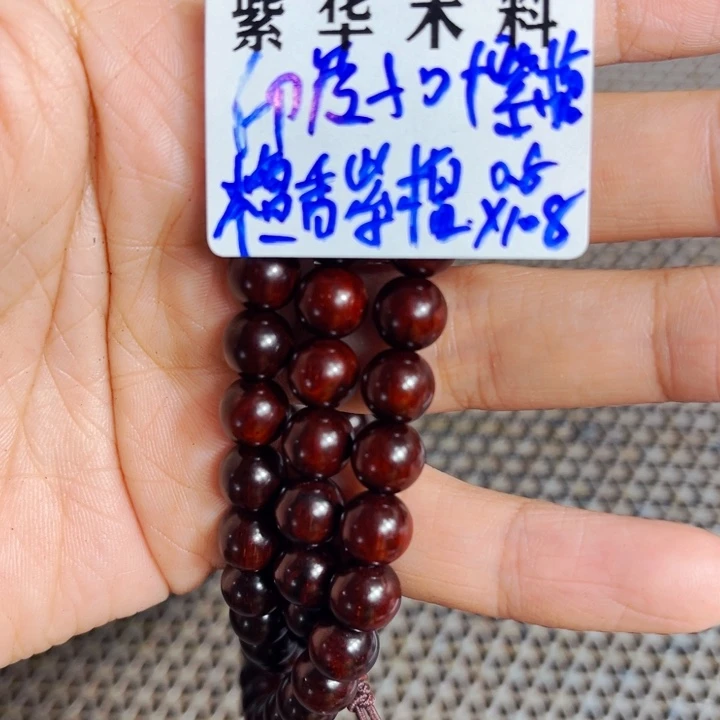 紫华木料
印度小叶紫檀
檀香紫檀 0.8
X108